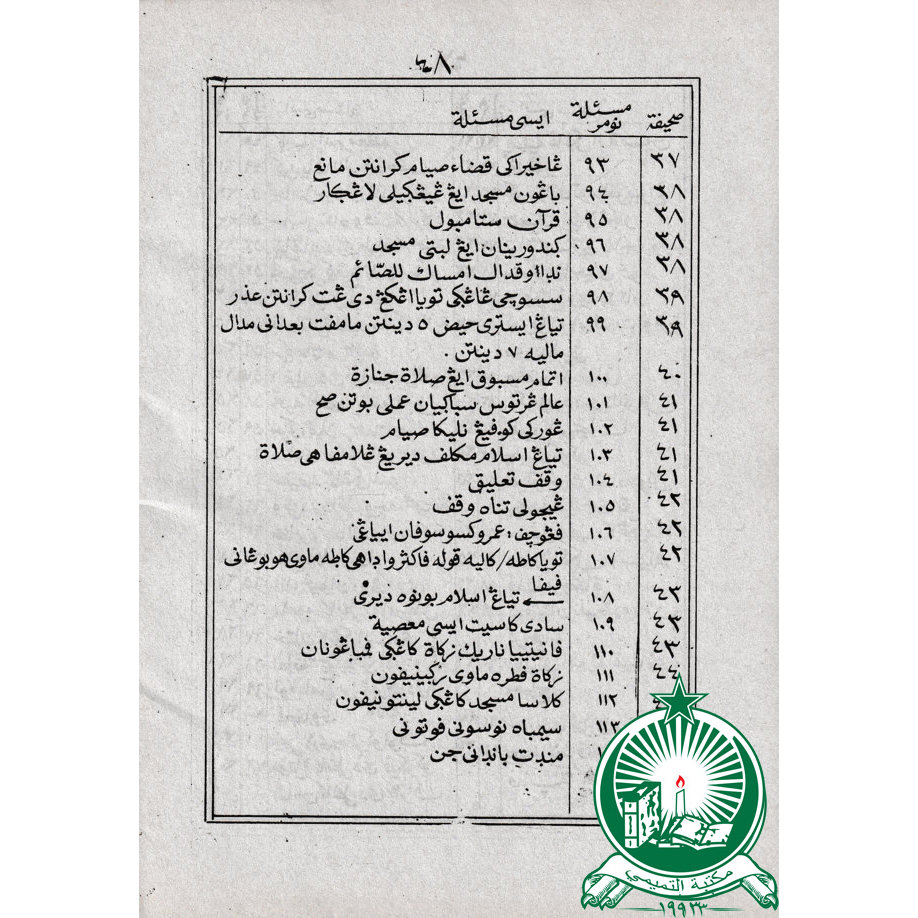 ٤٨
صحيفة مسئلة نومر ايسى مسئلة
٣٧ ٩٣ ڠاخيراكى قضاء صيام كرانتن مانع
٣٨ ٩٤ باڠون مسجد ايڠ ڠيڠكيلى لاڠكار
٣٨ ٩٥ قرآن ستامبول
٣٨ ٩٦ كندورينان ايڠ لبتى مسجد
٣٨ ٩٧ امساك للصّائم
٣٩ ٩٨ سسوچى ڠاڠكى تويا اڠكڠ دى ڠت كرانتن عذر
٣٩ ٩٩ تياڠ ايسترى حيض ٥ دينتن مامفت بعدانى مدال
ماليه ٧ دينتن .
٤٠ ١٠٠ اتمام مسبوق ايڠ صلاة جنازة
٤١ ١٠١ عالم ڠرتوس سباكيان عملى بوتن صح
٤١ ١٠٢ ڠوركى كوفيڠ نليكا صيام
٤١ ١٠٣ تياڠ اسلام مكلف ديريڠ ڠلامفاهى صلاة
٤١ ١٠٤ وقف تعليق
٤٢ ١٠٥ ڠيجولى تناه وقف
٤٢ ١٠٦ فڠوچف : عمروكسوسوفان ايباڠى
٤٢ ١٠٧ توياكاطه / كاليه قوله فاكثر واداهى كاطه ماوى هوبوڠانى
فيفا
٤٣ ١٠٨ تياڠ اسلام بونوه ديرى
٤٣ ١٠٩ سادى كاسيت ايسى معصية
٤٣ ١١٠ فانيتييا ناريك زكاة كاڠكى فمباڠونان
٤٤ ١١١ زكاة فطره ماوى زكبينيفون
١١٢ كلاسا مسجد كاڠكى لينتونيفون
١١٣ سيمباه نوسونى فوتونى
منذت باندانى جن
مكتبة التميمي